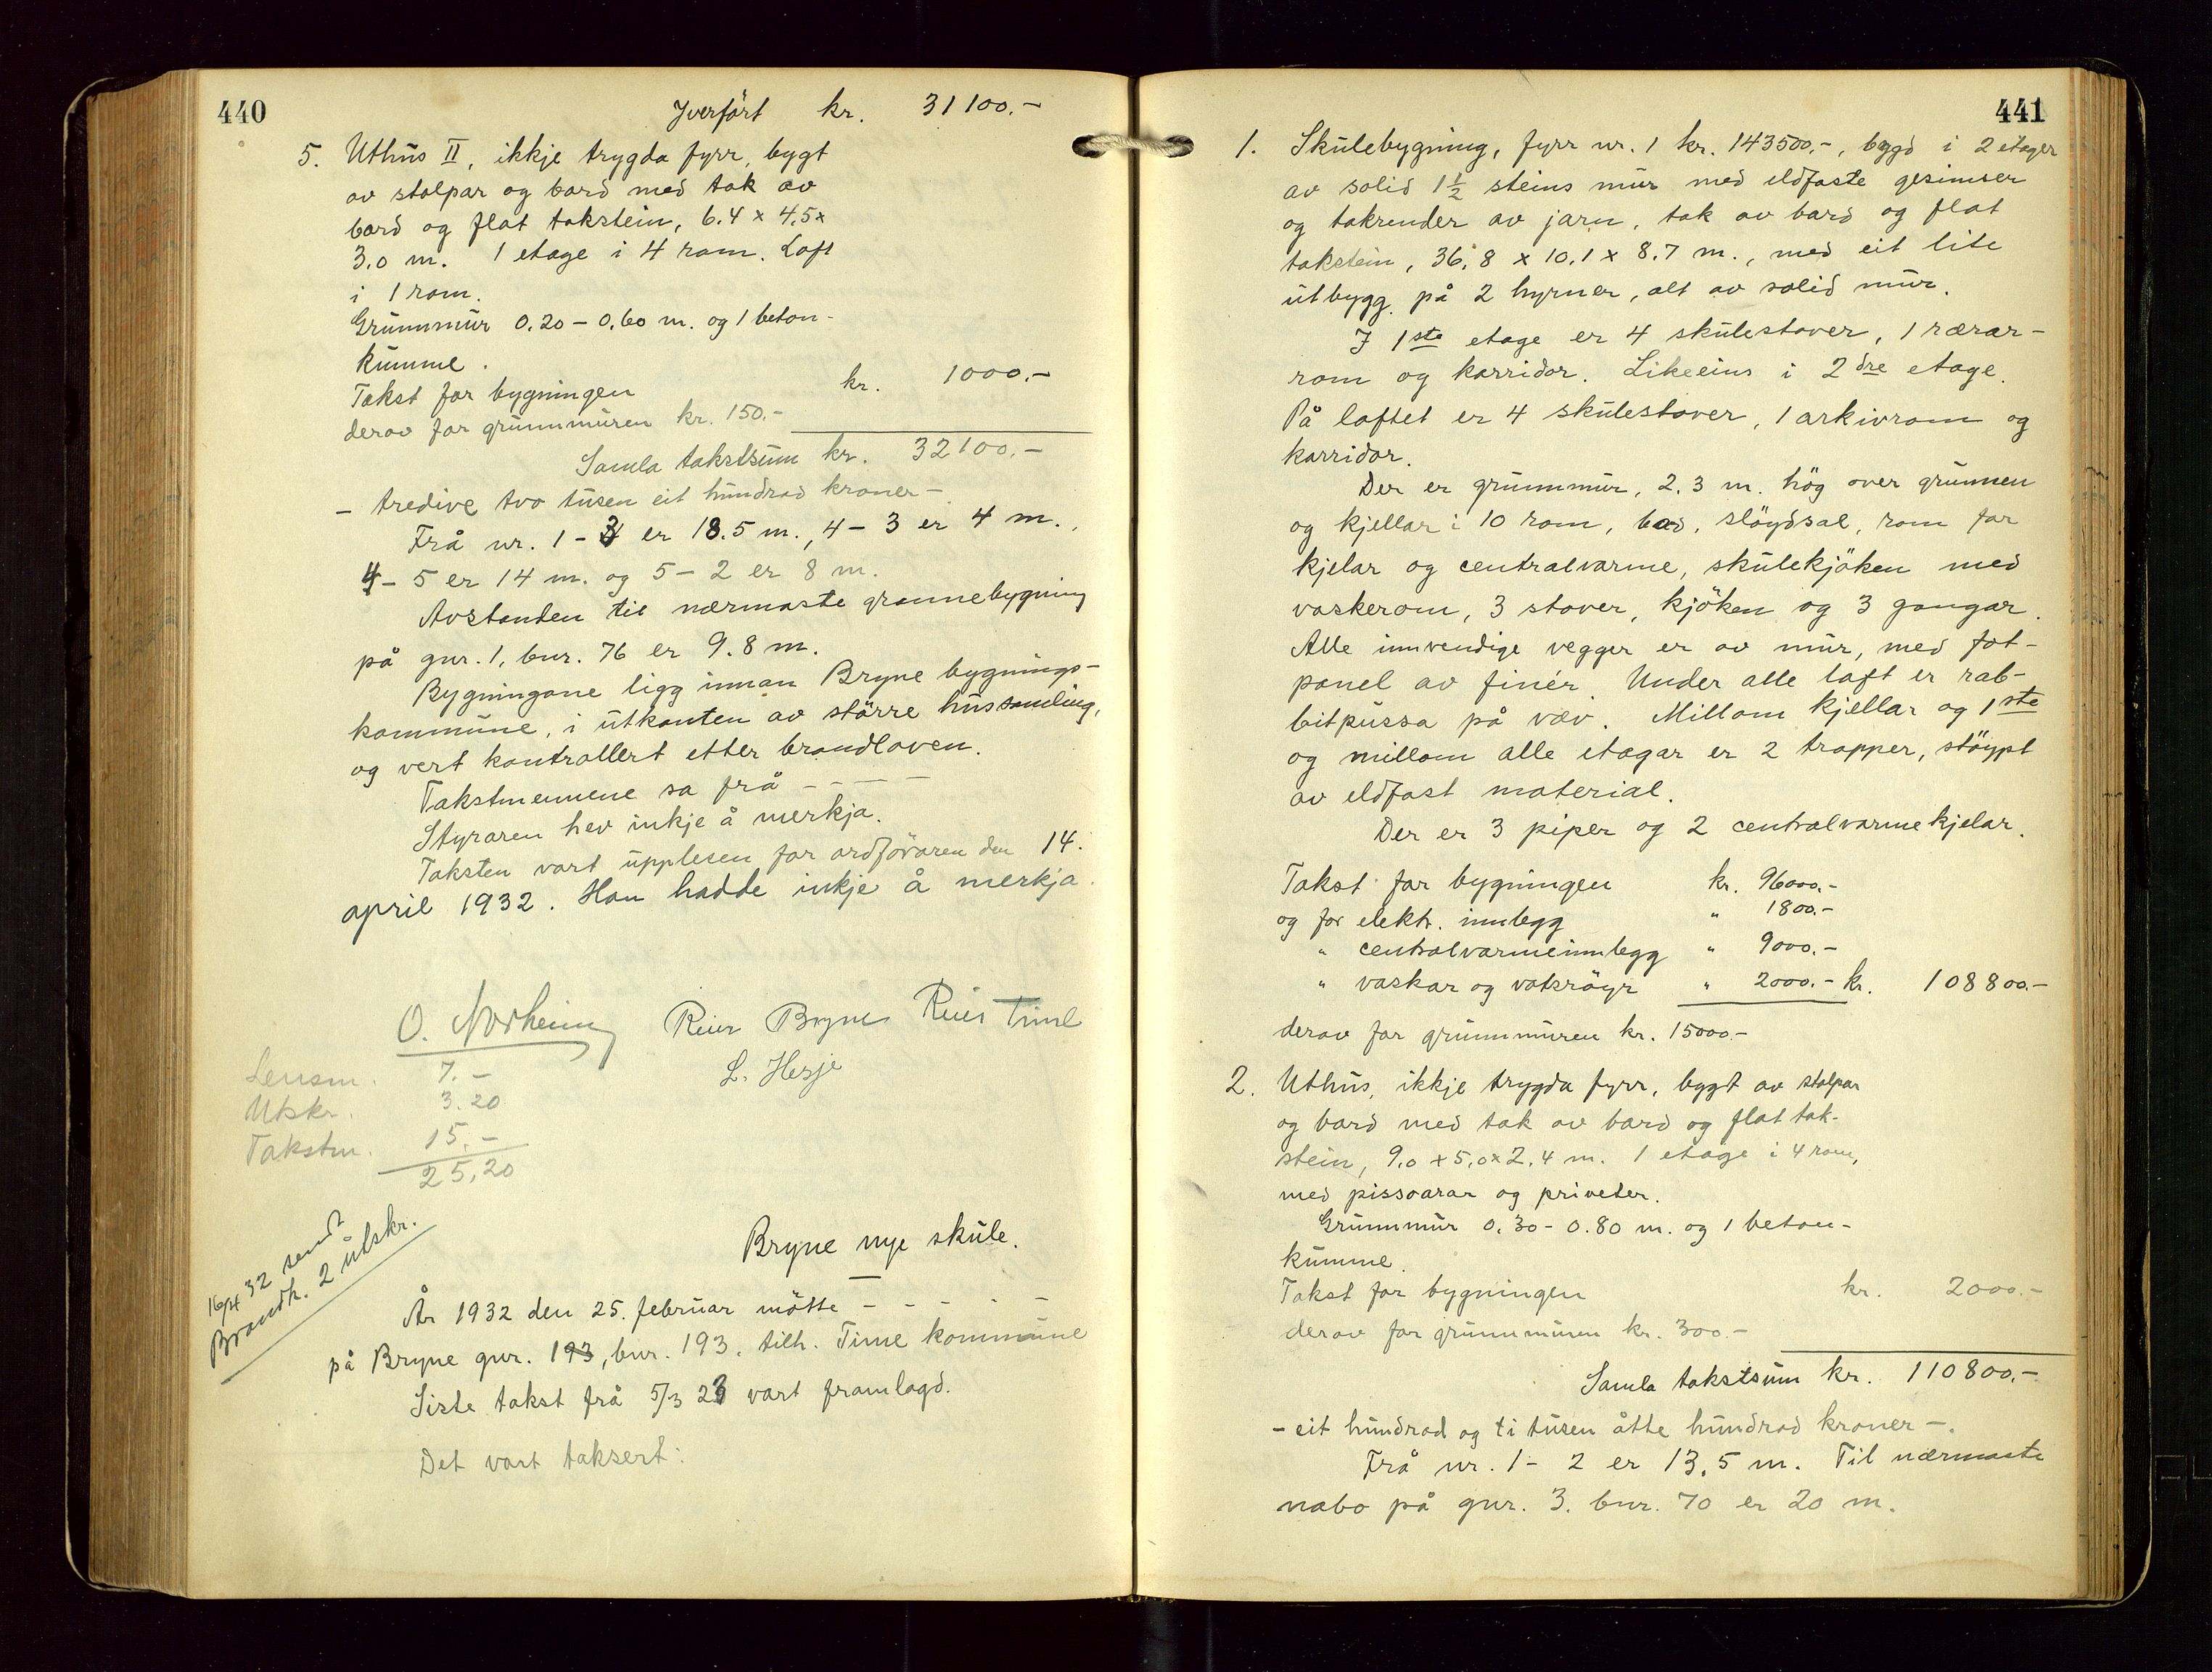 440
Yverført kr. 31100.-
5. Uthus II, ikkje trygda fyrr, bygt
av stolpar og bord med tak av
bord og flat takstein, 6.4 x 4.5 x
3.0 m. 1 etage i 4 rom. Loft
i 1 rom.
Grunnmur 0.20 - 0.60 m. og 1 beton-
kumme.
Takst for bygningen kr. 1000.-
derav for grunnmuren kr. 150.-
Samla takstsum kr. 32100.-
- tredive tvo tusen eit hundrad kroner -
Frå nr. 1 - 3 er 18.5 m., 4 - 3 er 4 m.,
4 - 5 er 14 m. og 5 - 2 er 8 m.
Avstanden til nærmaste grannebygning
på gnr. 1, bnr. 76 er 9.8 m.
Bygningane ligg innan Bryne bygnings-
kommune, i utkanten av større hussamling,
og vert kontrollert etter brandloven.
Takstmennene sa frå - - - -
Styraren hev inkje å merkja.
Taksten vart upplesen for ordføraren den 14.
april 1932. Han hadde inkje å merkja.
O. Norheim Reier Bryne Reier Time
L. Hesje
Lensm. 7.-
Utskr. 3.20
Takstm. 15.-
25,20
16/4 32 sendt
Brandk. 2 utskr.
Bryne nye skule.
År 1932 den 25. februar møtte - - - - -
på Bryne gnr. 193, bnr. 193, tilh. Time kommune
Siste takst frå 5/3 23 vart framlagd.
Det vart taksert:
441
1. Skulebygning, fyrr nr. 1 kr. 143500,-, bygd i 2 etager
av solid 1 1/2 steins mur med eldfaste gesimser
og takrender av jarn, tak av bord og flat
takstein, 36.8 x 10.1 x 8.7 m., med eit lite
utbygg på 2 hyrner, alt av solid mur.
I 1ste etage er 4 skulestover, 1 rærar-
rom og korridor. Likeeins i 2dre etage.
På loftet er 4 skulestover, 1 arkivrom og
korridor.
Der er grunnmur, 2.3 m. høg over grunnen
og kjellar i 10 rom, bad, sløydsal, rom for
kjelar og centralvarme, skulekjøken med
vaskerom, 3 stover, kjøken og 3 gangar.
Alle innvendige vegger er av mur, med fot-
panel av finér. Under alle loft er rab-
bitpussa på væv. Millom kjellar og 1ste
og millom alle etagar er 2 trapper, støypt
av eldfast material.
Der er 3 piper og 2 centralvarmekjelar.
Takst for bygningen kr. 96000.-
og for elektr. innlegg " 1800.-
" centralvarmeinnlegg " 9000.-
" vaskar og vatsrøyr " 2000.- kr. 108800.-
derav for grunnmuren kr. 15000.-
2. Uthus, ikkje trygda fyrr, bygt av stolpar
og bord med tak av bord og flat tak-
stein, 9.0 x 5.0 x 2.4 m. 1 etage i 4 rom,
med pissoarar og priveter.
Grunnmur 0.30 - 0.80 m. og 1 beton-
kumme.
Takst for bygningen kr. 2000.-
derav for grunnmuren kr. 300.-
Samla takstsum kr. 110800.-
- eit hundrad og ti tusen åtte hundrad kroner -.
Frå nr. 1 - 2 er 13.5 m. Til nærmaste
nabo på gnr. 3. bnr. 70 er 20 m.